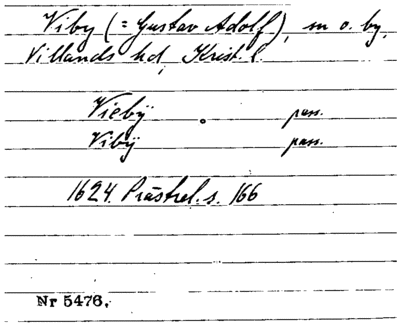 Viby (= Gustav Adolf), sn o. by,
Villands hd, Krist. l.
Vieby pass.
Vibÿ pass.
1624. Prästrel. s. 166
Nr 5476.